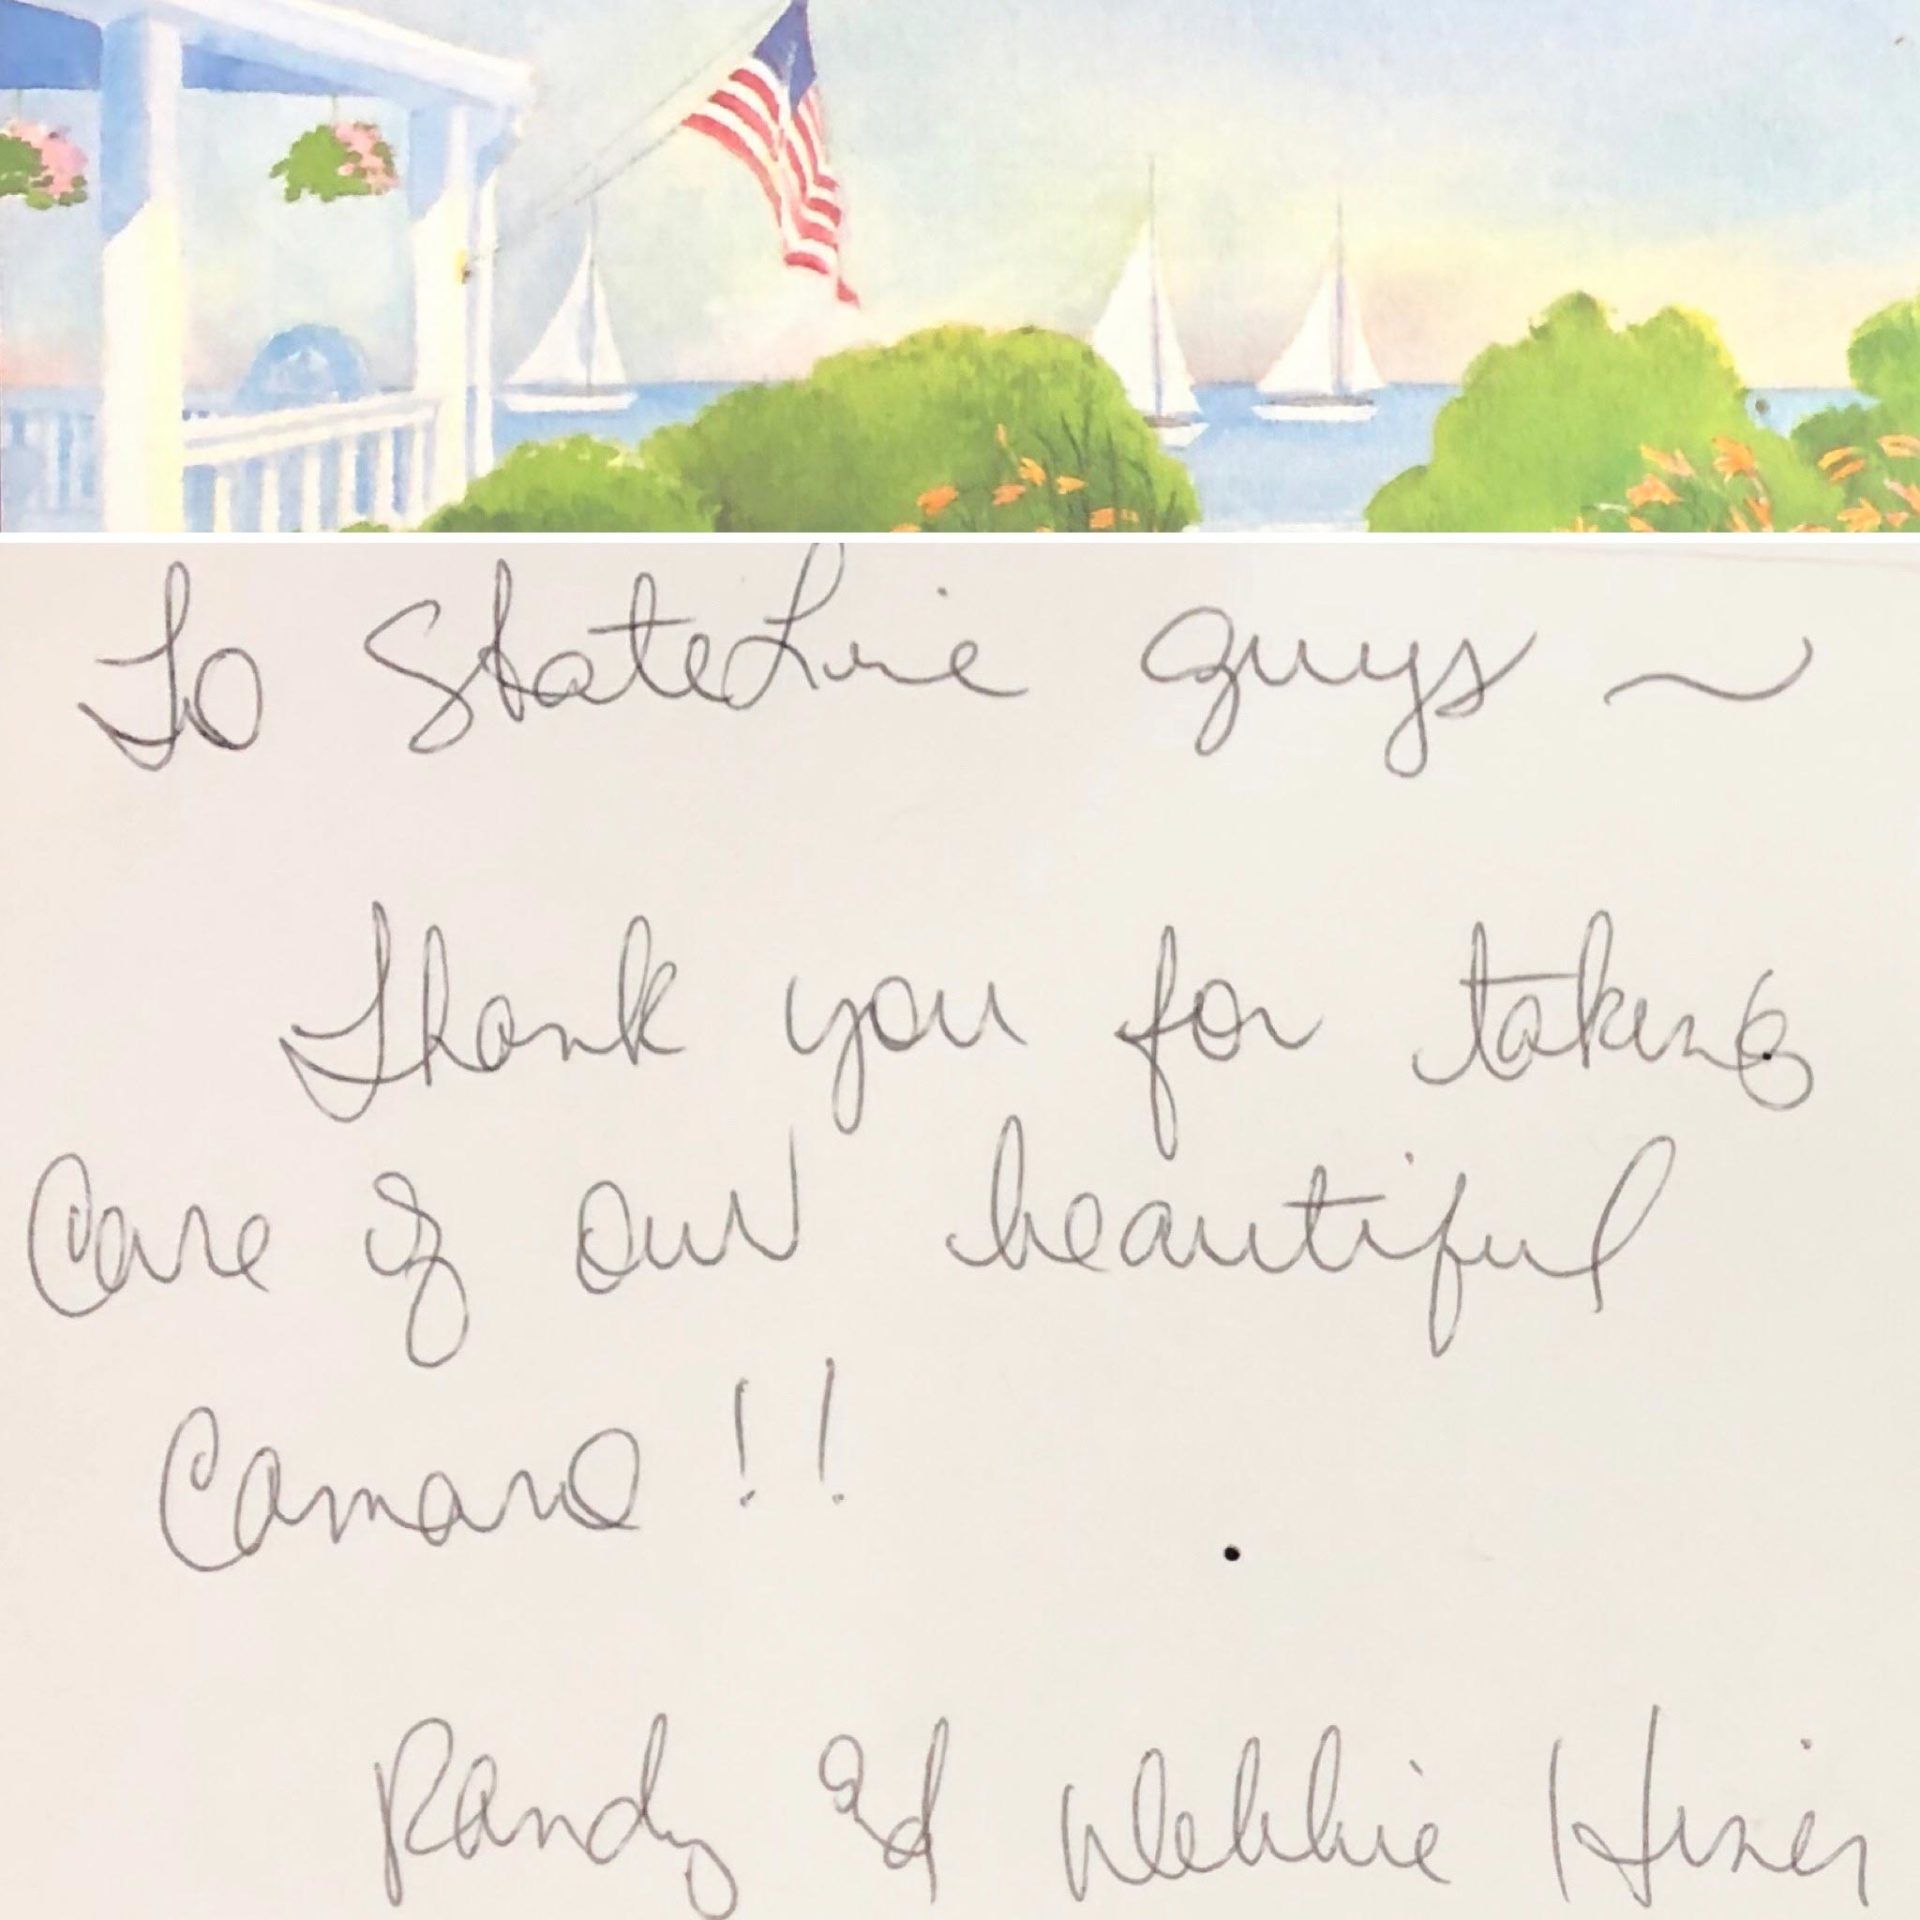 To StateLine guys ~
Thank you for taking
Care of our beautiful
Camaro!!
Randy and Debbie Hiner